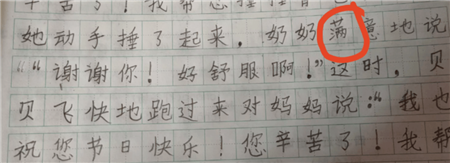 辛苦了！我帮您捶捶背
她动手捶了起来，奶奶满意地说
““谢谢你！好舒服啊！”这时，贝
贝飞快地跑过来对妈妈说：“我也
祝您节日快乐！您辛苦了！我帮